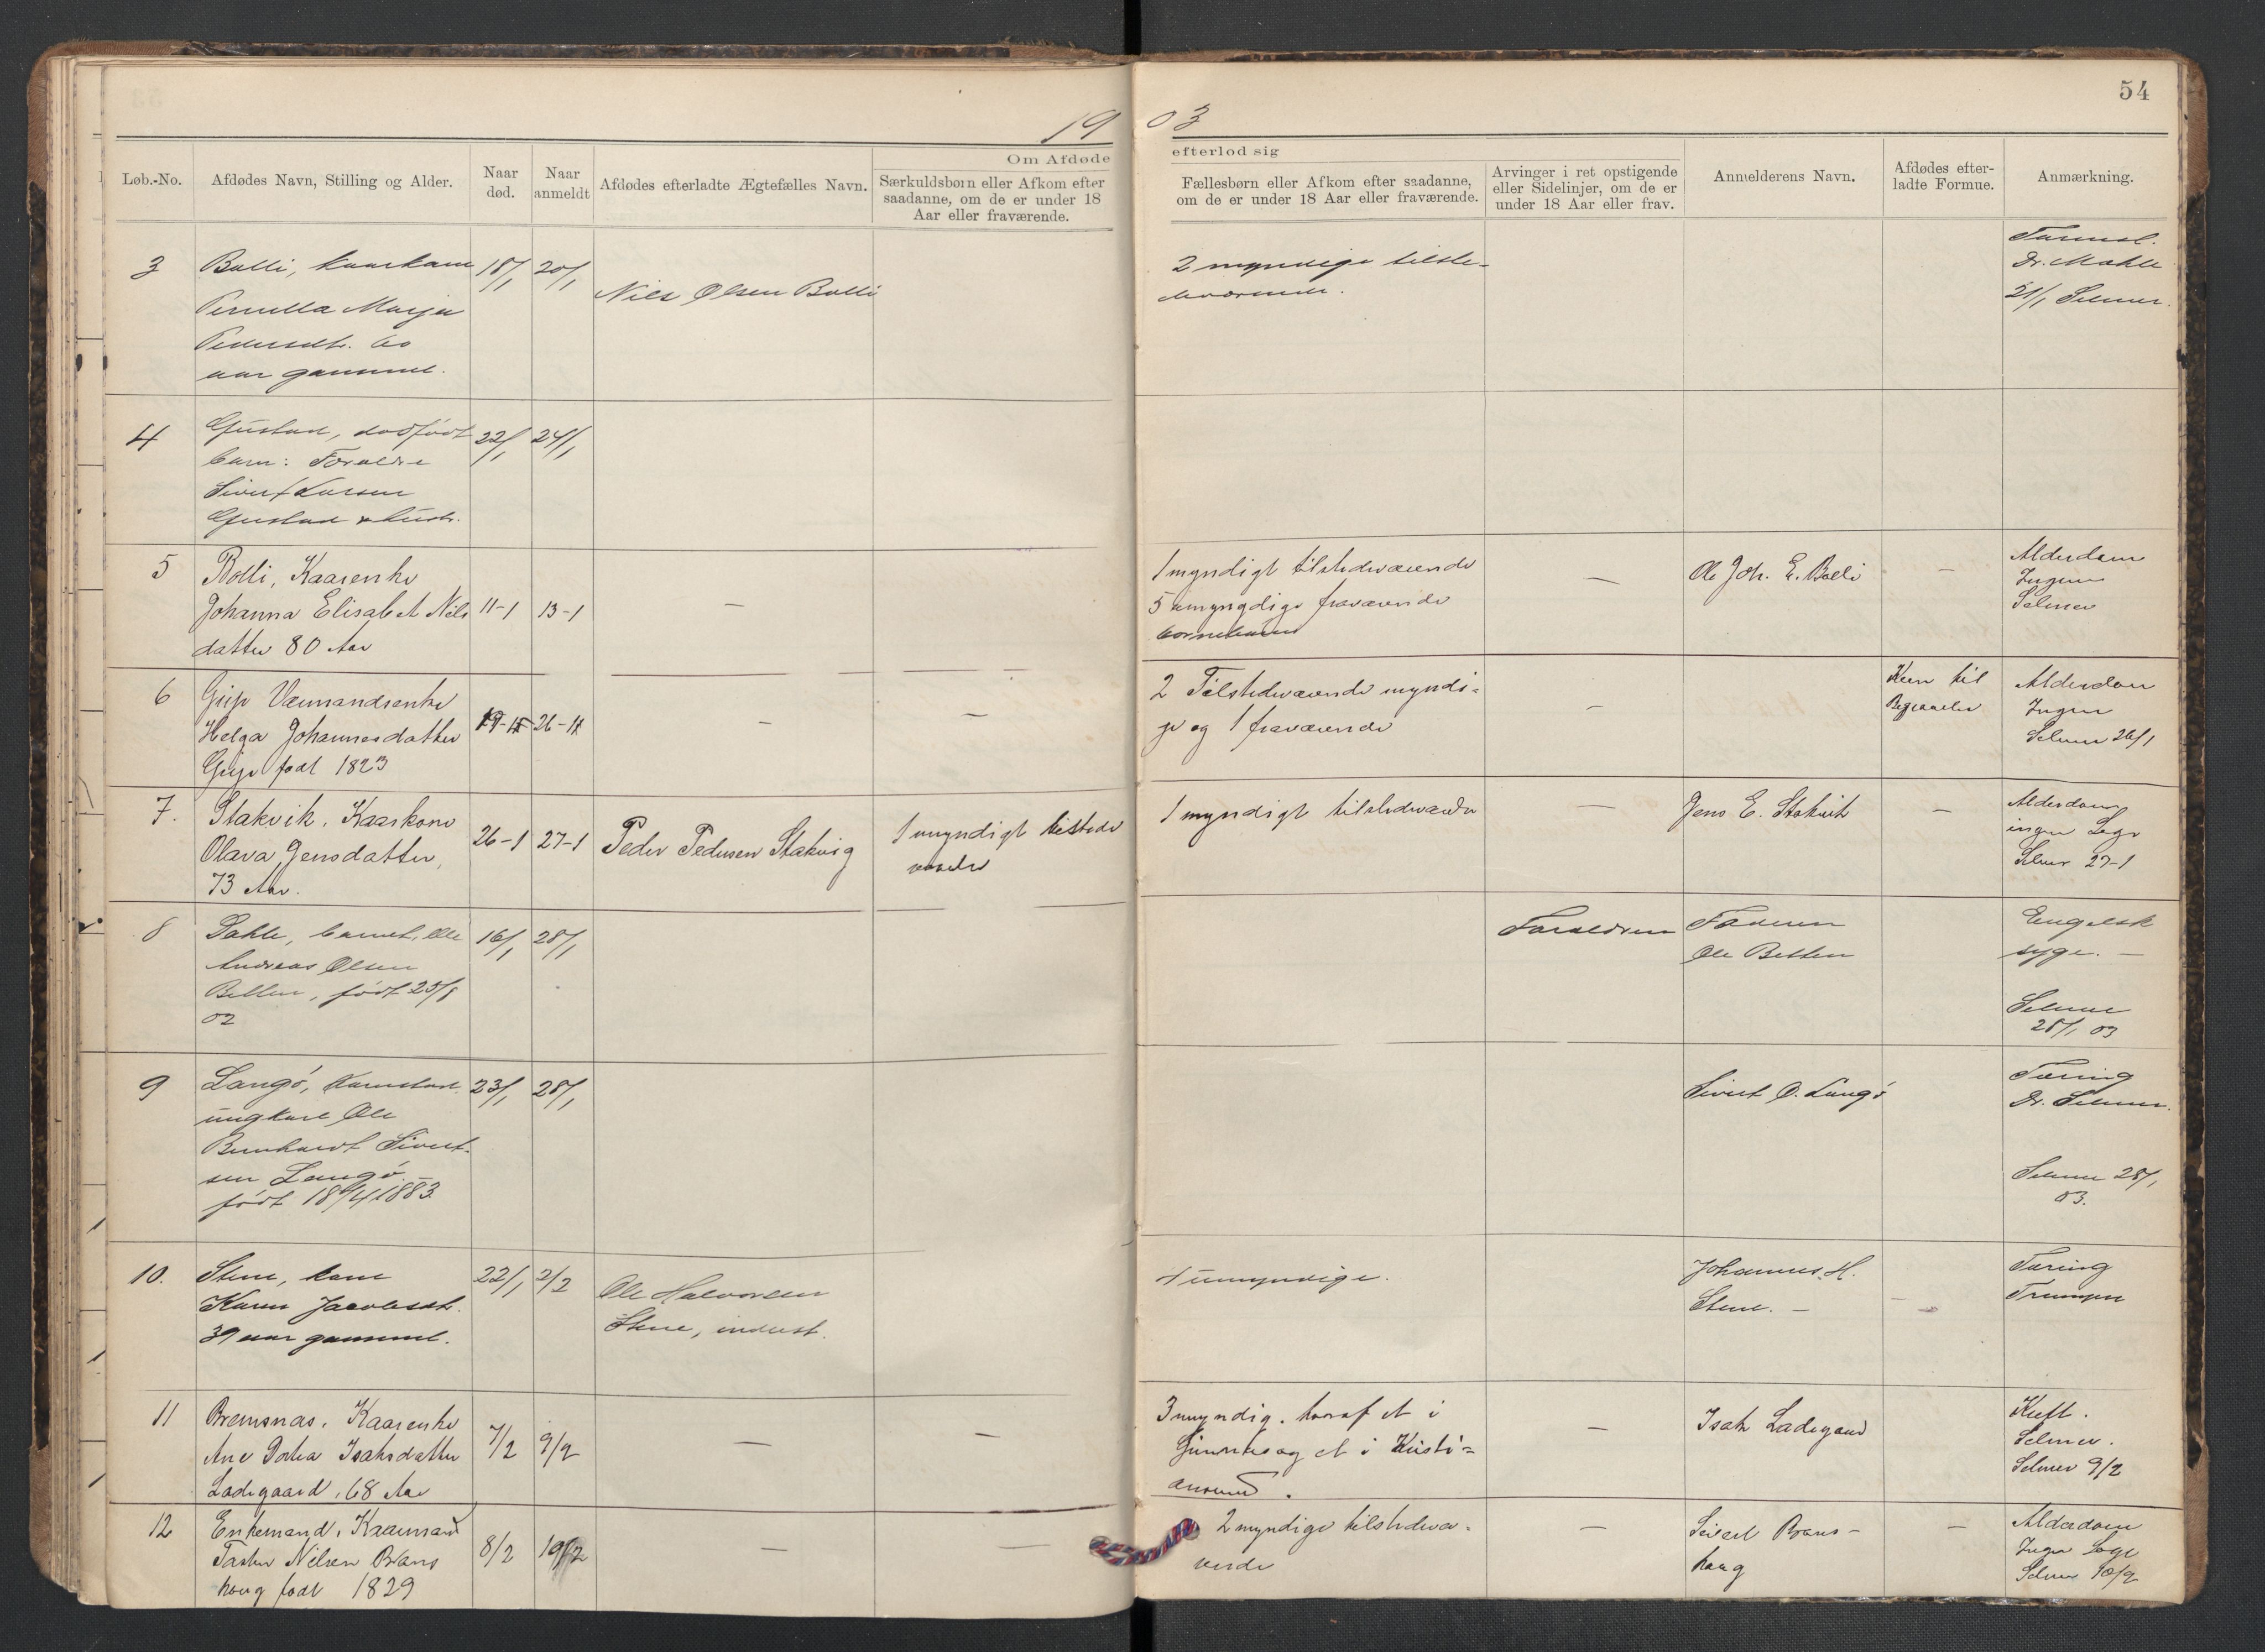 54
1903
Om Afdøde efterlod sig
Løb.-No.
Afdødes Navn, Stilling og Alder.
Naar død.
Naar anmeldt
Afdødes efterladte Ægtefælles Navn.
Særkuldsbørn eller Afkom efter saadanne, om de er under 18 Aar eller fraværende.
Fællesbørn eller Afkom efter saadanne, om de er under 18 Aar eller fraværende.
Arvinger i ret opstigende eller Sidelinjer, om de er under 18 Aar eller frav.
Anmelderens Navn.
Afdødes efterladte Formue.
Anmærkning.
3
Bolli, kaarkone
Pernilla Marja
Pedersdtr. 60
aar gammel.
18/1
20/1
Nils Olsen Bolli
2 myndige tilste-
21/1 Selmer.
4
Gustad, dødfødt
barn: Forældre
Sivert Larsen
Gustad & hustr.
22/1
24/1
5
Bolli, Kaarenke
Johanna Elisabet Nils
datter 80 Aar
11-1
13-1
—
1 myndigt tilstedværende
5 umyngdige fraværende
barnebarn
—
Ole Joh. E. Bolli
—
Alderdom
Ingen
Selmer
6
GripVærmandsenke
Helga Johannesdatter
Grip født 1823
19-1
26-1
—
—
2 Tilstedværende myndi=
ge og 1 fraværende
—
Kun til
Begravelse
Alderdom
Ingen
Selmer 26/1
7.
Stakvik, Kaarkone
Olava Jensdatter,
73 Aar.
26-1
27-1
Peder Pedersen Stakvig
1 myndigt tilstede
1 myndigt tilstedværende
—
Jens E. Stakvik
—
Alderdom
ingen Læge
Selmer 27-1
8
Dahle, barnet, Ole
Andreas Olsen
Betten, født 25/8
02
16/1
28/1
Forældrene
Faderen
Ole Betten
Engelsk
syge. —
Selmer
28/1 03
9
Langø,
ungkarl Ole
Bernhardt Sivert-
sen Langø.
født 18/4 1883.
23/1
28/1
Sivert O. Langø
Tæring
Dr. Selmer.
Selmer 28/1
03.
10.
Stene, kone
Karen Jacobsdtr.
39 aar gammel.
22/1
2/2
Ole Halvorsen
Stene, inderst.
4 umyndige.
Johannes H.
Stene. —
—
Tæring
11
Bremsnæs, Kaarenke
Ane Dortea Isaksdatter
Ladegaard, 68 Aar
7/2
9/2
—
—
3 myndig. hvoraf et i
og et i Kristi=
ansund.
—
Isak Ladegaard
Kræft.
Selmer.
Selmer 9/2
12
Enkemand, Kaarmand
Nilsen Brans
haug født 1829
8/2
10/2
—
—
2 myndige tilstedvæ=
rende
—
Sivert Brans-
haug
—
Alderdom
Ingen Læge
Selmer 10/2